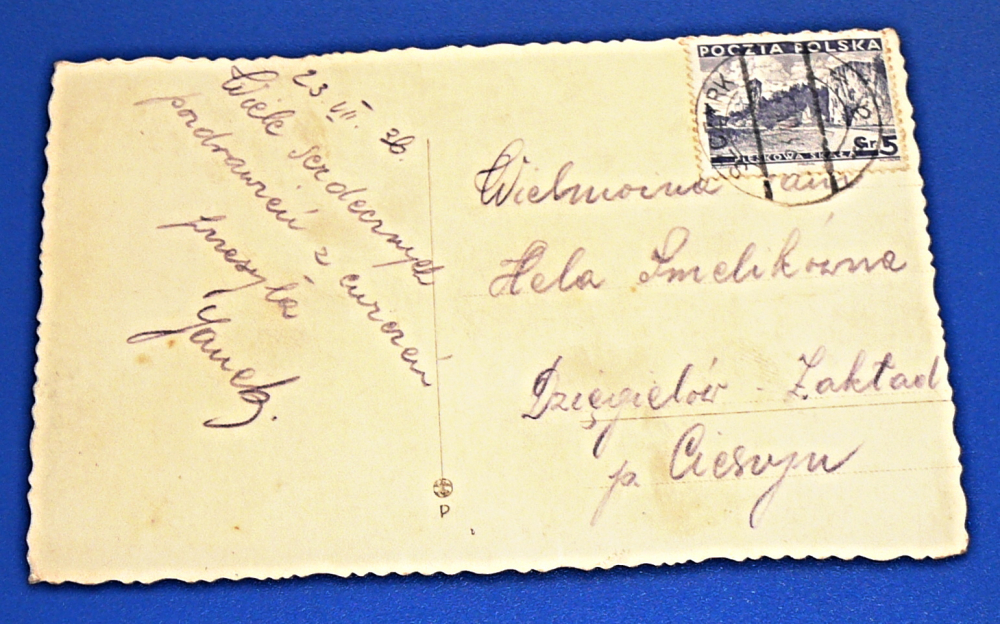 23 VII. 36.
Wiele serdecznych
pozdrowień z ćwiczeń
przesyła
Janek.
POCZTA POLSKA
PIESKOWA SKAŁA
Gr 5
Wielmożna Pani
Hela Smelikówna
Dzięgielów - Zakład
p. Cieszyn
P